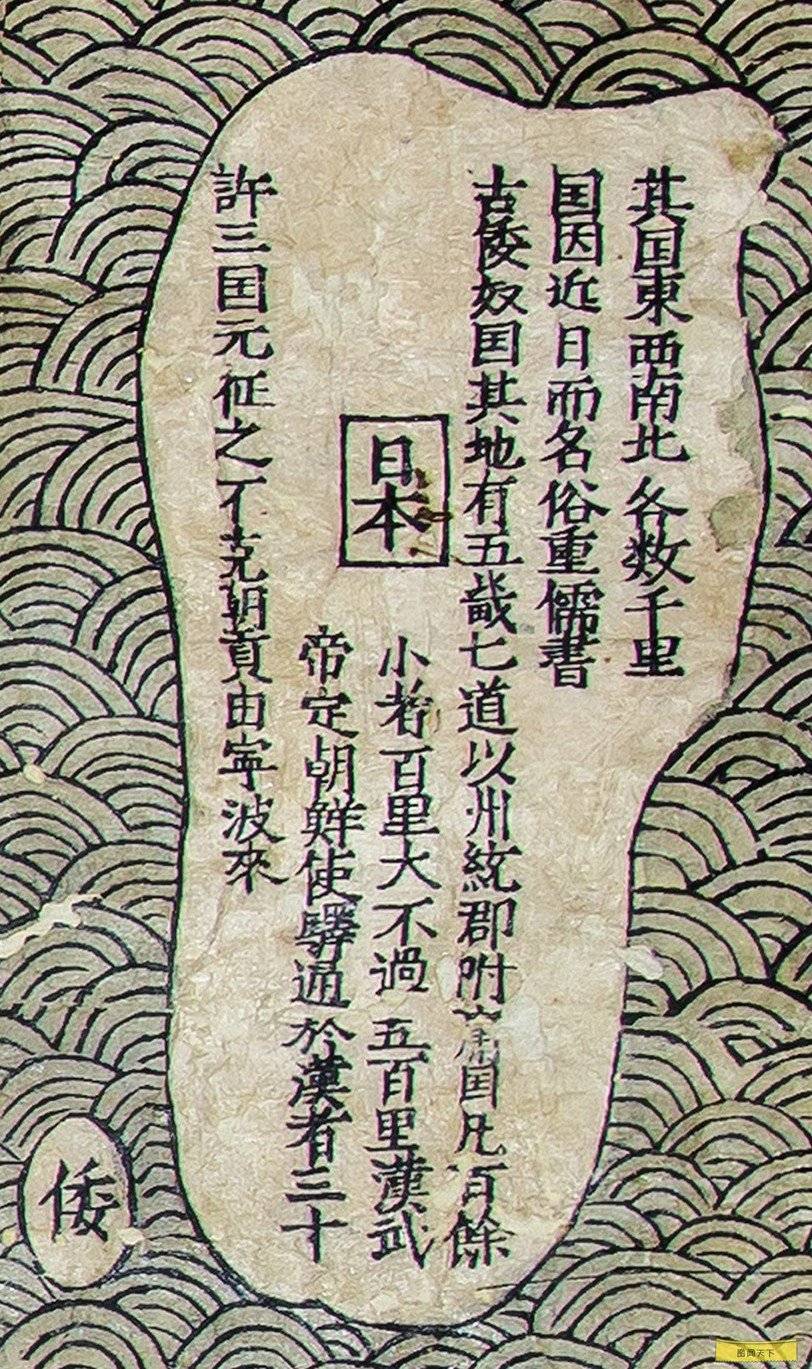 其国東西南北各数千里
国因近日而名俗重儒書
古倭奴国其地有五畿七道以州統郡附庸国凡百餘
日本
小者百里大不過五百里漢武
帝定朝鮮使驛通於漢者三十
許三国元征之不克朝貢由寧波來
倭
图闻天下